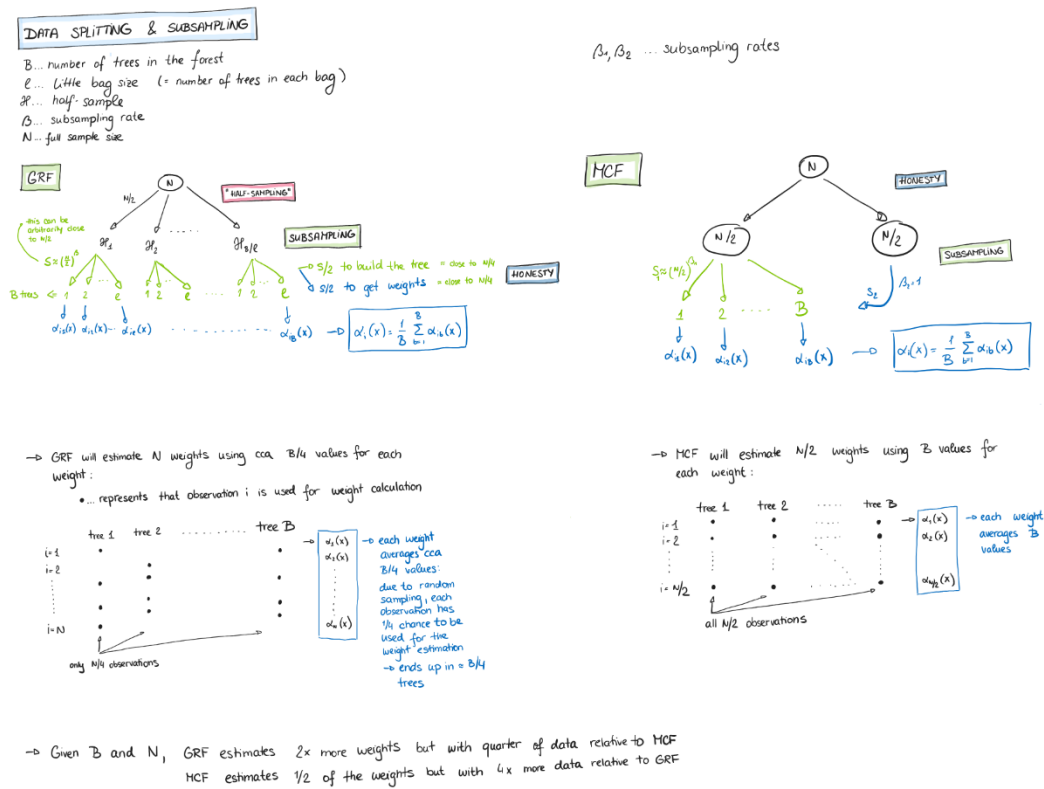 DATA SPLITTING & SUBSAMPLING
B... number of trees in the forest
ℓ... little bag size (= number of trees in each bag)
ℋ... half-sample
β... subsampling rate
N... full sample size
β₁, β₂ ... subsampling rates
GRF
N
N/2
"HALF-SAMPLING"
this can be
arbitrarily close
to N/2
ℋ₁ ℋ₂ ..... ℋ_B/ℓ
SUBSAMPLING
S≈(N/2)^β
S/2 to build the tree = close to N/4
S/2 to get weights = close to N/4
HONESTY
B trees ⇐ 1 2 ℓ 1 2 ℓ ..... 1 2 ℓ
αᵢ₁(x) αᵢ₂(x)... αᵢℓ(x) .......... αᵢB(x) → αᵢ(x) = 1/B Σ_{b=1}^{B} αᵢb(x)
MCF
N
HONESTY
N/2 N/2
SUBSAMPLING
S₁≈(N/2)^β₁
β₂=1
S₂
1 2 ..... B
αᵢ₁(x) αᵢ₂(x) αᵢB(x) → αᵢ(x) = 1/B Σ_{b=1}^{B} αᵢb(x)
→ GRF will estimate N weights using cca B/4 values for each
weight:
•... represents that observation i is used for weight calculation
tree 1 tree 2 ......... tree B
i=1
i=2
i=N
→ α₁(x)
α₂(x)
αₙ(x)
→ each weight
averages cca
B/4 values:
due to random
sampling, each
observation has
1/4 chance to be
used for the
weight estimation
→ ends up in ≈ B/4
trees
only N/4 observations
→ MCF will estimate N/2 weights using B values for
each weight:
tree 1 tree 2 ..... tree B
i=1
i=2
i=N/2
→ α₁(x)
α₂(x)
α_N/2(x)
→ each weight
averages B
values
all N/2 observations
→ Given B and N, GRF estimates 2x more weights but with quarter of data relative to MCF
MCF estimates 1/2 of the weights but with 4x more data relative to GRF